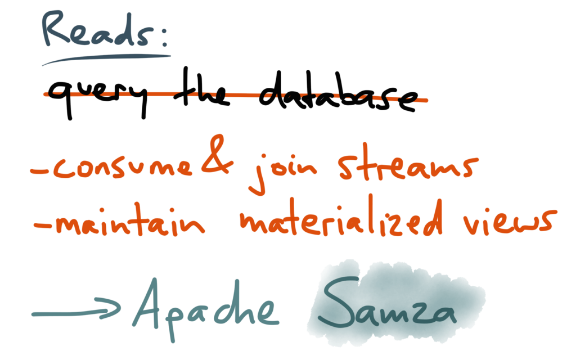 Reads:
query the database
-consume & join streams
-maintain materialized views
→ Apache Samza